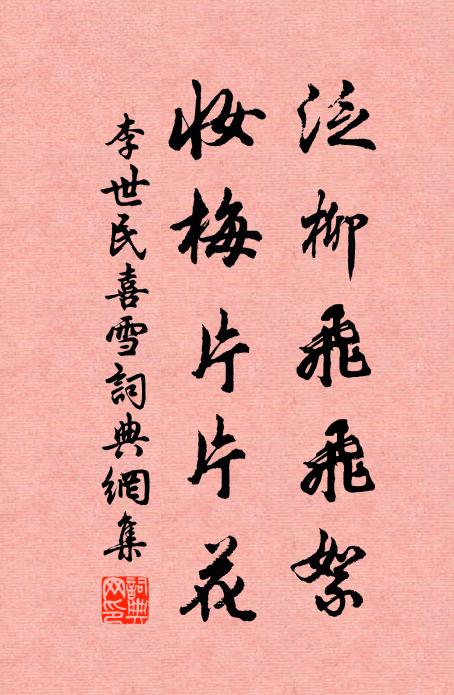 泛柳飛飛絮
妝梅片片花
李世民喜雪詞典網集
詞典網印